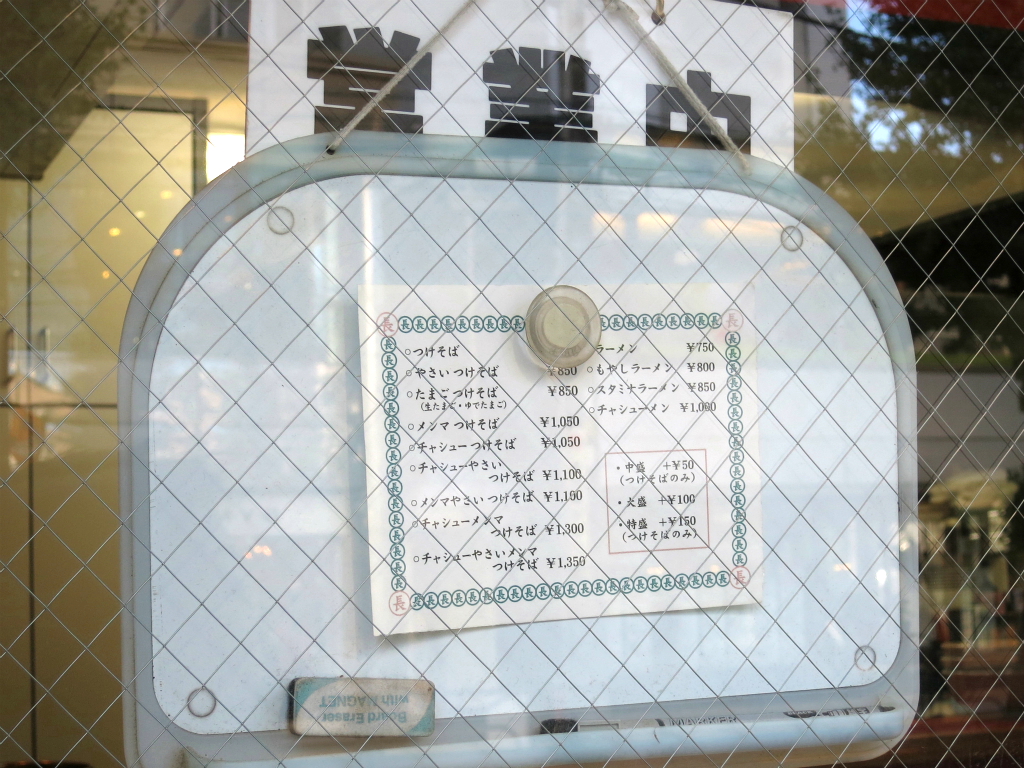 営業中
○つけそば
○やさいつけそば ¥850
○たまごつけそば ¥850
（生たまご・ゆでたまご）
○メンマ つけそば ¥1,050
○チャシューつけそば ¥1,050
○チャシューやさい
つけそば ¥1,100
○メンマやさい つけそば ¥1,100
○チャシューメンマ
つけそば ¥1,300
○チャシューやさいメンマ
つけそば ¥1,350
ラーメン ¥750
○もやしラーメン ¥800
○スタミナラーメン ¥850
○チャシューメン ¥1,000
・中盛 +¥50
（つけそばのみ）
・大盛 +¥100
・特盛 +¥150
（つけそばのみ）
Board Eraser
with MAGNET
MARKER